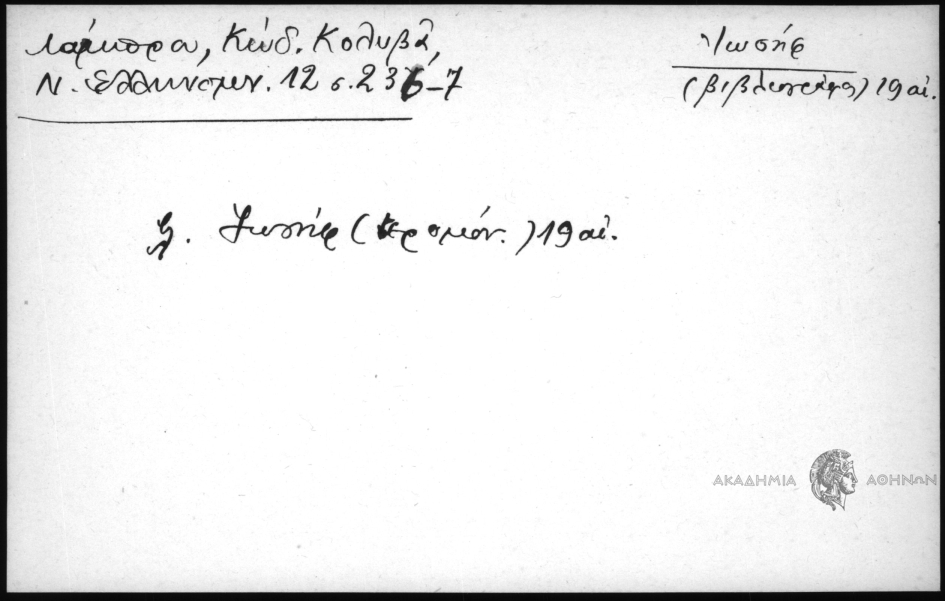 Λάμπρου, Κώδ. Κολυβᾶ,
Ν. Ἑλληνομν. 12 σ. 236-7
Ἰωσήφ
(βιβλιογράφος) 19 αἰ.
Ἰωσήφ (ἱερομόν.) 19 αἰ.
ΑΚΑΔΗΜΙΑ ΑΘΗΝΩΝ